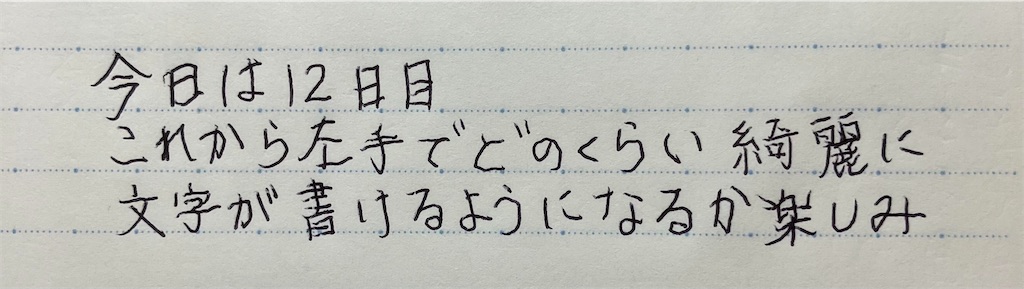 今日は12日目
これから左手でどのくらい綺麗に
文字が書けるようになるか楽しみ